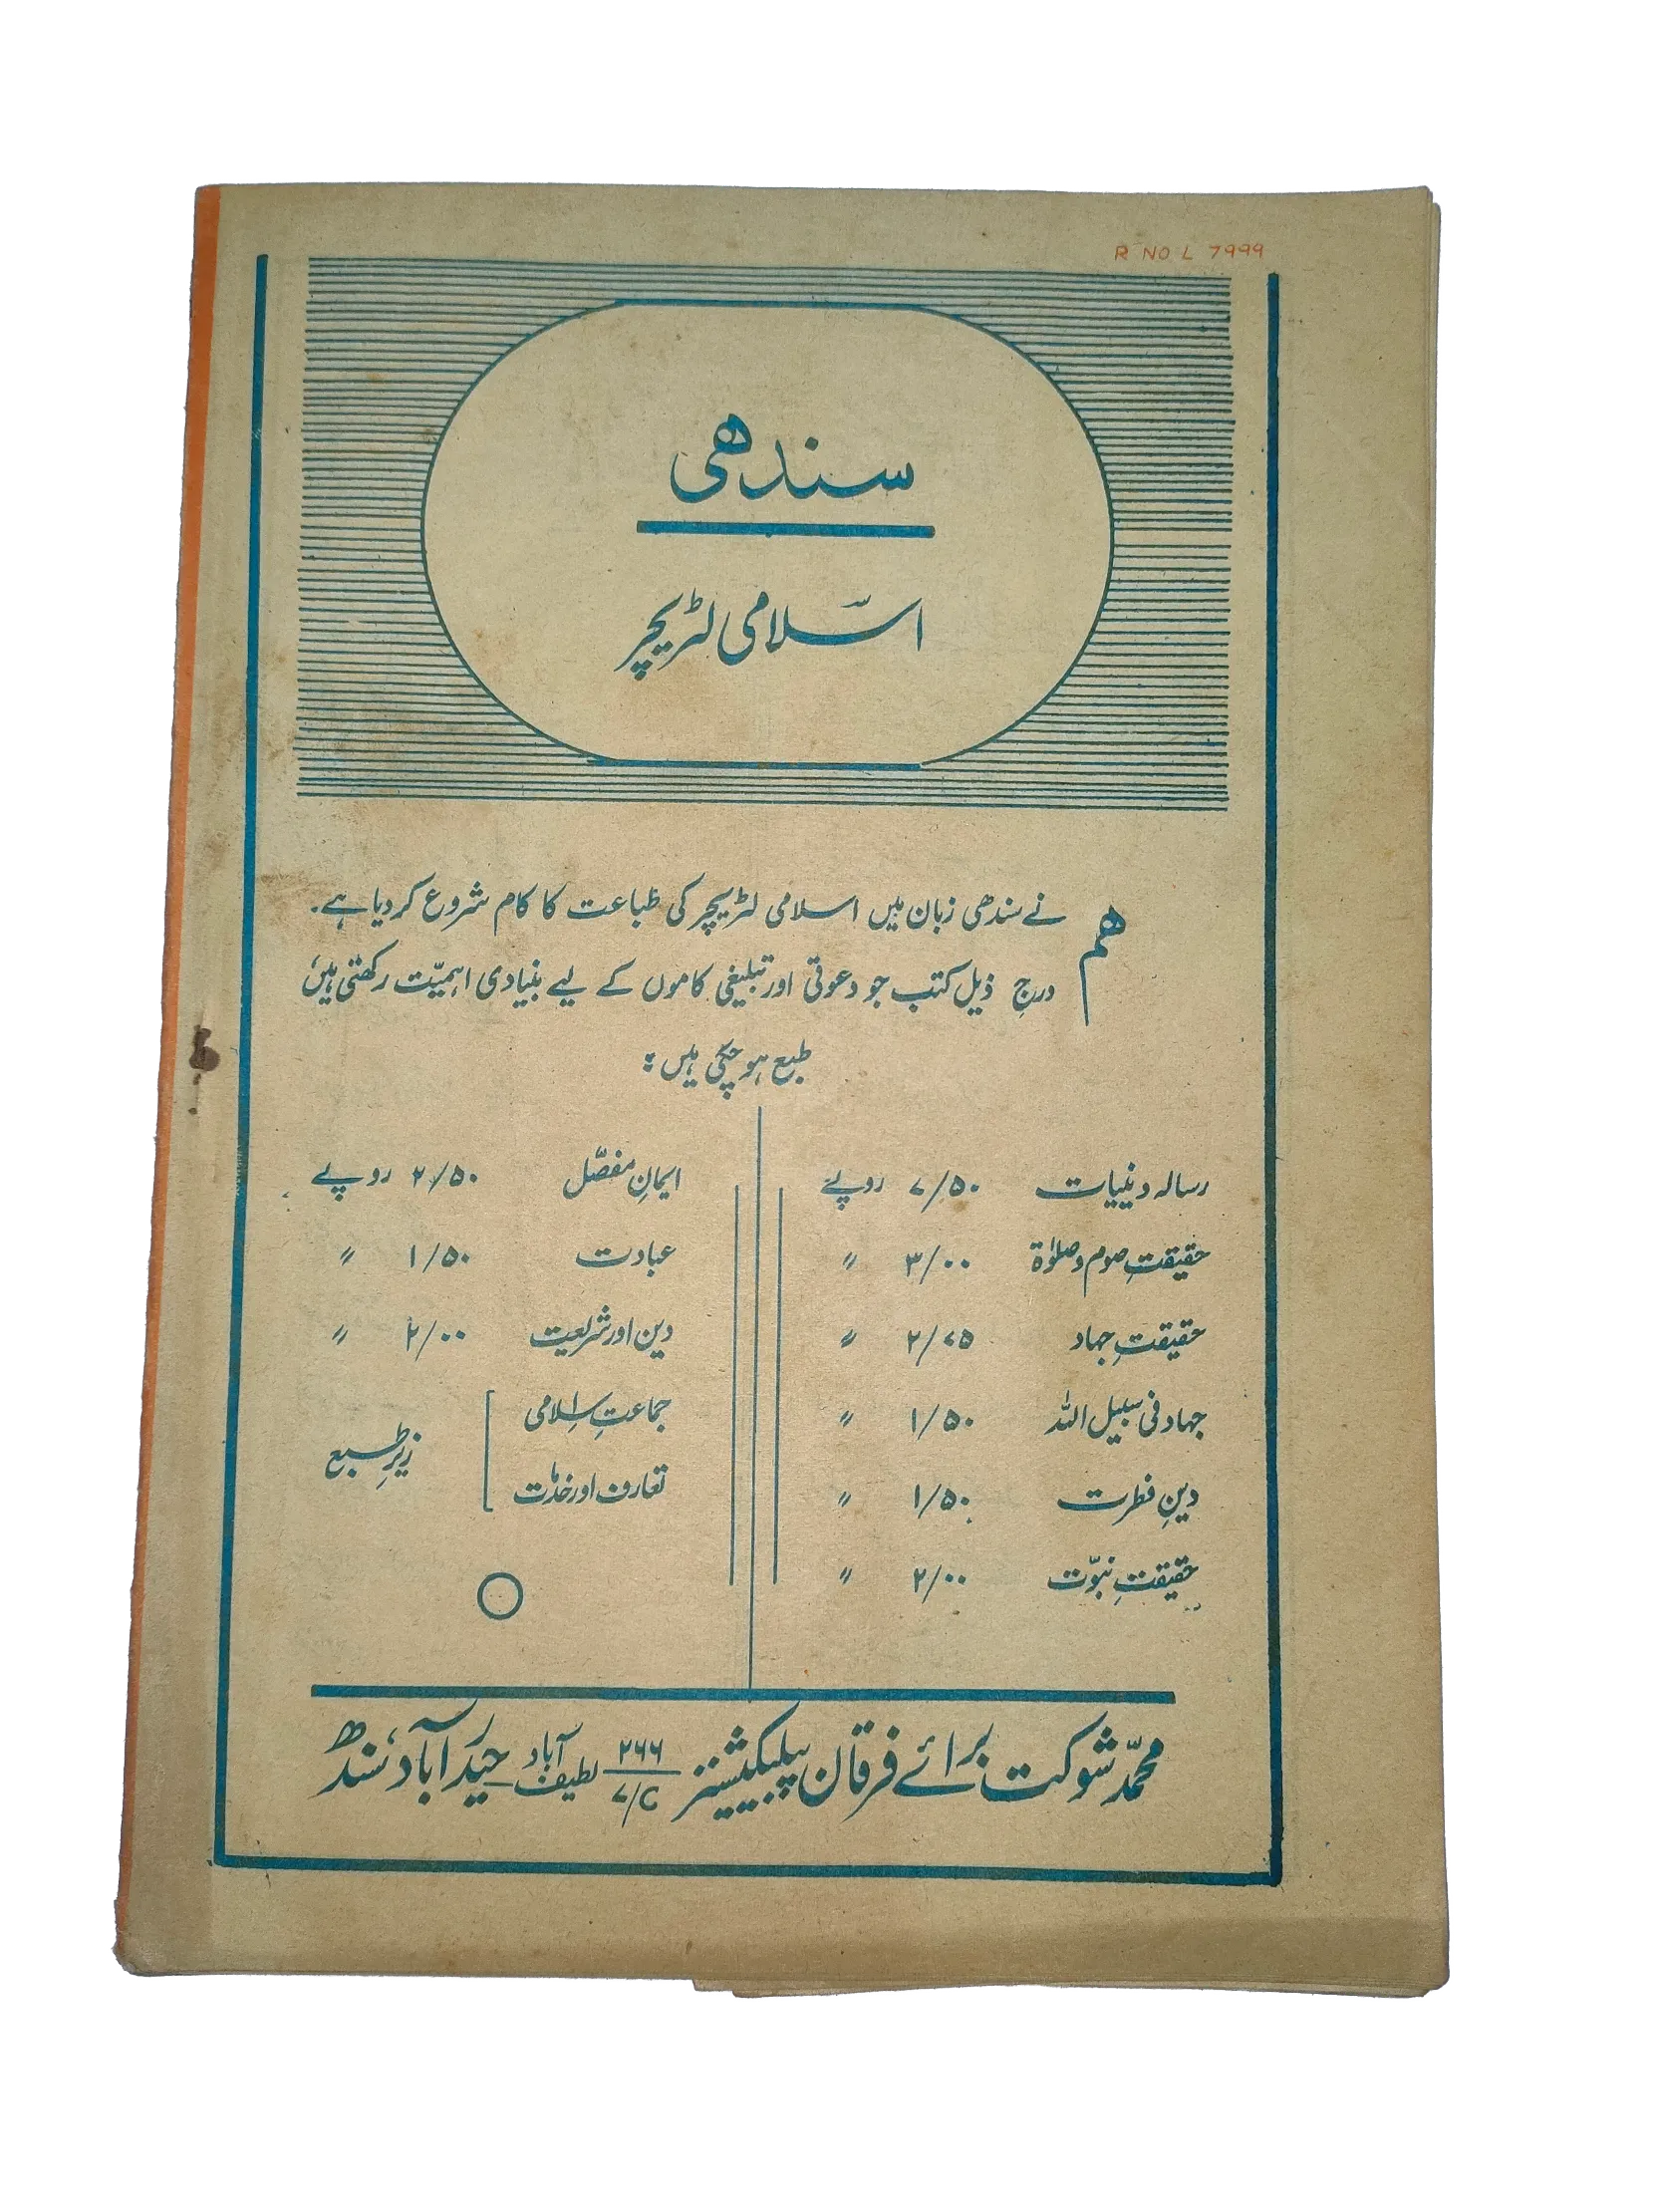 R NO L 7999
سندھی
اسلامی لٹریچر
ہم نے سندھی زبان میں اسلامی لٹریچر کی طباعت کا کام شروع کر دیا ہے۔
درجِ ذیل کتب جو دعوتی اور تبلیغی کاموں کے لیے بنیادی اہمیّت رکھتی ہیں،
طبع ہو چکی ہیں:
رسالہ دینیات ۷/۵۰ روپے
حقیقتِ صوم و صلوٰۃ ۳/۰۰ 〃
حقیقتِ جہاد ۲/۷۵ 〃
جہاد فی سبیل اللہ ۱/۵۰ 〃
دینِ فطرت ۱/۵۰ 〃
حقیقتِ نبوّت ۲/۰۰ 〃
ایمانِ مفصّل ۲/۵۰ روپے
عبادت ۱/۵۰ 〃
دین اور شریعت ۲/۰۰ 〃
جماعتِ اسلامی
تعارف اور خدمات
زیرِ طبع
محمّد شوکت برائے فرقان پبلیکیشنز ۲۶۶ ۷/C لطیف آباد حیدرآباد، سندھ